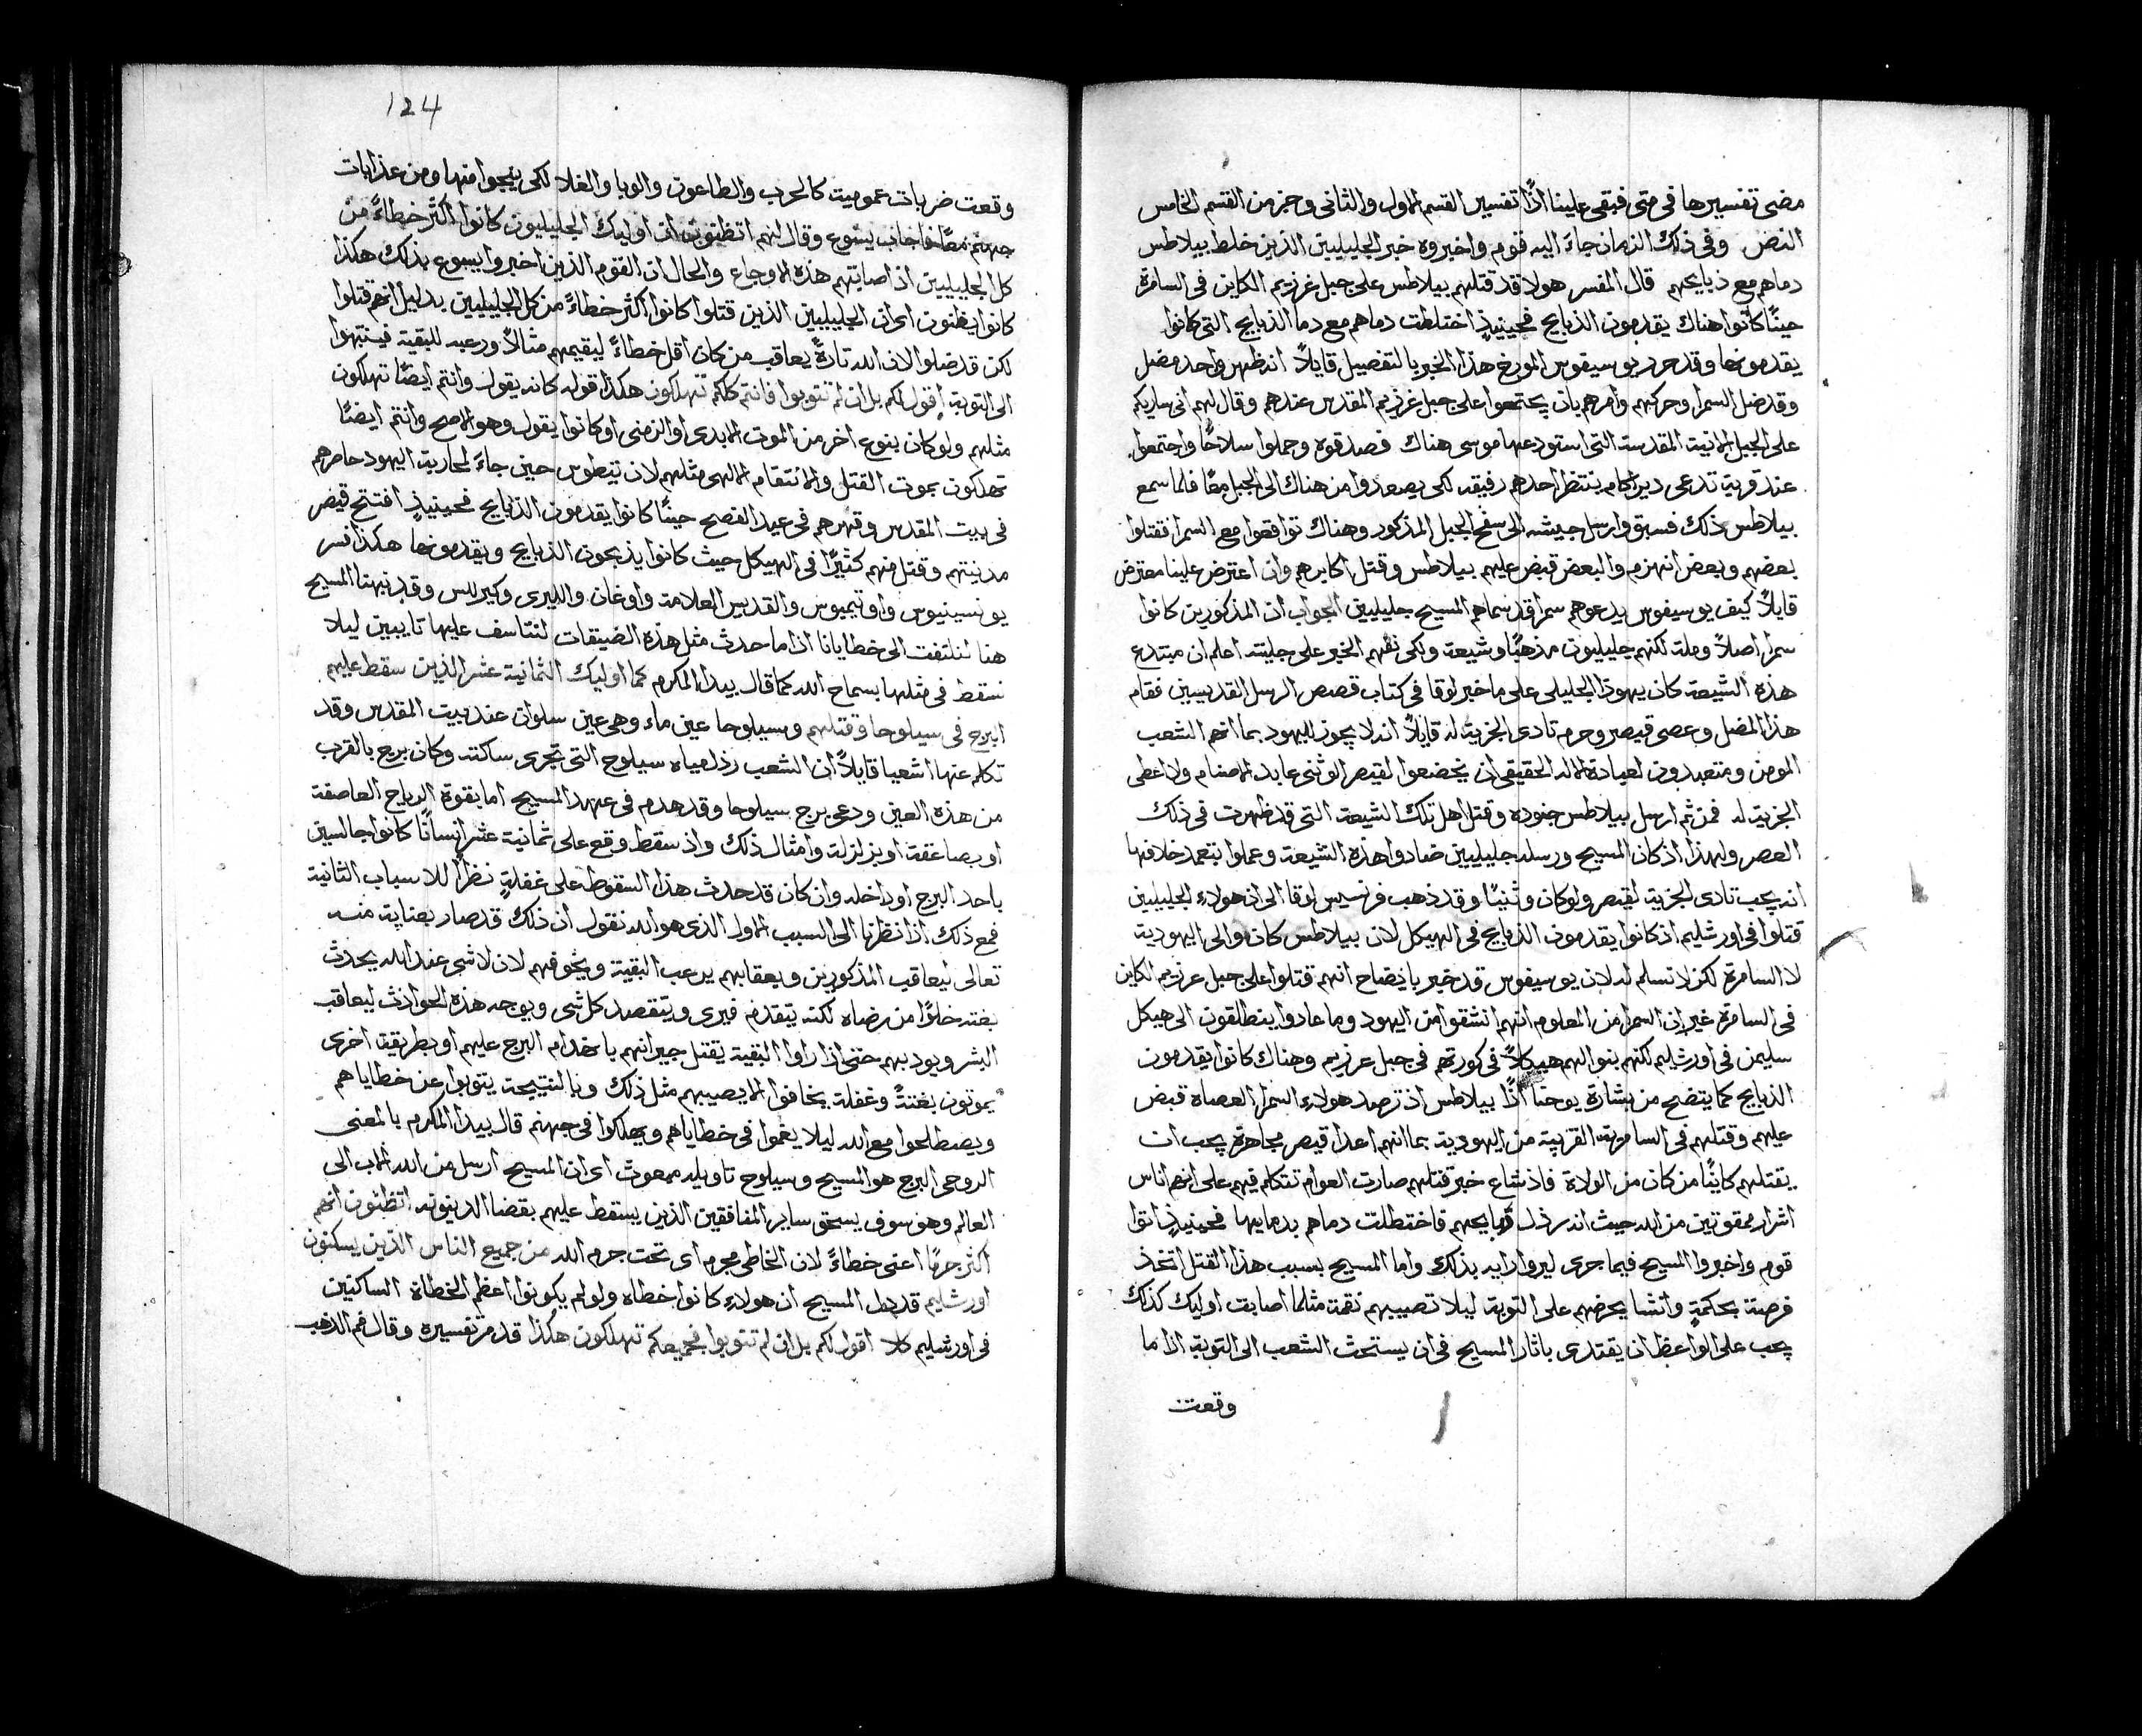 مضى تفسيرها فى متى فبقى علينا اذًا تفسير القسم الاول والثانى وجز من القسم الخامس
النص وفى ذلك الزمان جاءَ اليه قوم واخبروه خبر الجليليين الذين خلط بيلاطس
دماهم مع ذبايحهم قال المفسر هولا قد قتلهم بيلاطس على جبل غرزيم الكاين فى السامرة
حينًا كانوا هناك يقدمون الذبايح فحينيذٍ اختلطت دماهم مع دما الذبايح التى كانوا
يقدمونها وقد حرر يوسيفوس المورخ هذا الخبر بالتفصيل قايلاً انه ظهر واحد مضل
وقد ضل السمرا وحركهم وامرهم بان يجتمعوا على جبل غرزيم المقدس عندهم وقال لهم انى ساريكم
على الجبل الانية المقدسة التى استودعها موسى هناك فصدقوه وحملوا سلاحًا واجتمعوا
عند قرية تدعى ديراكام ينتظر احدهم رفيقه لكى يصعدوا من هناك الى الجبل معًا فلما سمع
بيلاطس ذلك فسبق وارسل جيشه الى سفح الجبل المذكور وهناك تواقعوا مع السمرا فقتلوا
بعضهم وبعض انهزم والبعض قبض عليهم بيلاطس وقتل اكابرهم وان اعترض علينا معترض
قايلاً كيف يوسيفوس يدعوهم سمرا قد سماهم المسيح جليليين الجواب ان المذكورين كانوا
سمرا اصلاً وملة لكنهم جليليون مذهبًا وشيعة ولكى نفهم الخبر على جليته اعلم ان مبتدع
هذه الشيعة كان يهوذا الجليلى على ما خبر لوقا فى كتاب قصص الرسل القديسين فقام
هذا المضل وعصى قيصر وحرم تادى الجزية له قايلاً انه لا يجوز لليهود بما انهم الشعب
المومن ومتعبدون لعيادة الاله الحقيقى ان يخضعوا لقيصر الوثنى عابد الاصنام ولا اعطى
الجزية له فمن ثم ارسل بيلاطس جنوده وقتل اهل تلك الشيعة التى قد ظهرت فى ذلك
العصر ولهذا اذ كان المسيح ورسله جليليين ضادوا هذه الشيعة وعملوا بتعمد خلافها
انه يجب تادى الجزية لقيصر ولو كان وثنيًا وقد ذهب فرنسيس لوقا الى ان هولاء الجليليين
قتلوا فى اورشليم اذ كانوا يقدمون الذبايح فى الهيكل لان بيلاطس كان والى اليهودية
لا السامرة لكن لا تسلم له لان يوسيفوس قد خبر بايضاح انهم قتلوا على جبل غرزيم الكاين
فى السامرة غير ان السمرا من المعلوم انهم انشقوا من اليهود وما عادوا ينطلقون الى هيكل
سليمن فى اورشليم لكنهم بنوا لهم هيكلاً فى كورتهم فى جبل غرزيم وهناك كانوا يقدمون
الذبايح كما يتضح من بشارة يوحنا اذًا بيلاطس اذ ترصد هولاء السمرا العصاة قبض
عليهم وقتلهم فى السامرية القريبة من اليهودية بما انهم اعدا قيصر مجاهرة يجب ان
يقتلهم كاينًا من كان من الولاة فاذ شاع خبر قتلهم صارت العوام تتكلم فيهم على انهم اناس
اشرار ممقوتين من الله حيث انه رذل ذبايحهم فاختطلت دماهم بدمايها فحينيذٍ اتوا
قوم واخبروا المسيح فيما جرى ليروا رايه بذلك واما المسيح بسبب هذا القتل اتخذ
فرصة بحكمةٍ وانشا يحرضهم على التوبة ليلا تصيبهم نقمة مثلما اصابت اوليك كذلك
يجب على الواعظ ان يقتدى باثار المسيح فى ان يستحث الشعب الى التوبة اذا ما
وقعت
124
وقعت ضربات عموميت كالحرب والطاعون والوبا والغلا لكى ينجوا منها ومن عذابات
جهنم معًا فاجاب يسوع وقال لهم اتظنون ان اوليك الجليليون كانوا اكثر خطاءً من
كل الجليليين اذ اصابتهم هذه الاوجاع والحال ان القوم الذين اخبروا يسوع بذلك هكذا
كانوا يظنون اى ان الجليليين الذين قتلوا كانوا اكثر خطاءً من كل الجليليين بدليل انهم قتلوا
لكن قد ضلوا لان الله تارةً يعاقب من كان اقل خطاءً ليقيمهم مثالاً ورعبه للبقية فينتبهوا
الى التوبة اقول لكم بل ان لم تتوبوا فانتم كلكم تهلكون هكذا قوله كانه يقول وانتم ايضًا تهلكون
مثلهم ولو كان بنوع اخر من الموت الابدى او الزمنى او كانوا يقول وهو الاصح وانتم ايضًا
تهلكون بموت القتل والانتقام الالهى مثلهم لان تيطوس حين جاءَ لمحاربة اليهود حاصرهم
فى بيت المقدس وقهرهم فى عيد الفصح حينًا كانوا يقدمون الذبايح فحينيذٍ افتتح قيصر
مدنيتهم وقتل منهم كثيرًا فى الهيكل حيث كانوا يذبحون الذبايح ويقدمونها هكذا فسر
يونسينيوس واوتيميوس والقديس العلامة واوغان والليرى وكيرللس وقد نبهنا المسيح
هنا لنلتفت الى خطايانا اذا ما حدث مثل هذه الضيقات لنتاسف عليها تايبين ليلا
نسقط فى مثلها بسماح الله كما قال بيدا المكرم كما اوليك الثمانية عشر الذين سقط عليهم
البرج فى سيلوحا وقتلهم وسيلوحا عين ماء وهى عين سلوان عند بيت المقدس وقد
تكلم عنها اشعيا قايلاً ان الشعب رذل مياه سيلوح التى تجرى ساكنة وكان برج بالقرب
من هذه العين ودعى برج سيلوحا وقد هدم فى عهد المسيح اما بقوة الرياح العاصفة
او بصاعقة او بزلزلة وامثال ذلك واذ سقط وقع على ثمانية عشر انسانًا كانوا جالسين
باحد البرج او داخله وان كان قد حدث هذا السقوط على غفلةٍ نظرًا للاسباب الثانية
فمع ذلك اذا نظرنا الى السبب الاول الذى هو الله نقول ان ذلك قد صار بعناية منه
تعالى ليعاقب المذكورين وبعقابهم يرعب البقية ويخوفهم لان لا شى عند الله يحدث
بغتة خلوًا من رضاه لكنه يتقدم فيرى ويتقصد كل شى ويوجه هذه الحوادث ليعاقب
البشر ويودبهم حتى اذا راوا البقية يقتل جيرانهم بانهدام البرج عليهم او بطريقة اخرى
يموتون بغتةً وغفلة يخافوا الا يصيبهم مثل ذلك وبالنتيجة يتوبوا عن خطاياهم
ويصطلحوا مع الله ليلا يغموا فى خطاياهم ويهلكوا فى جهنم قال بيدا المكرم بالمعنى
الروحى البرج هو المسيح وسيلوح تاويله مبعوث اى ان المسيح ارسل من الله الاب الى
العالم وهو سوف يسحق ساير المنافقين الذين يسقط عليهم بقضا الدينونة اتظنون انهم
اكثر جرمًا اعنى خطاءً لان الخاطى مجرم اى تحت جرم الله من جميع الناس الذين يسكنون
اورشليم المسيح ان هولاء كانوا خطاه ولو لم يكونوا اعظم الخطاة الساكنين
فى اورشليم كلا اقول لكم بل ان لم تتوبوا فجميعكم تهلكون هكذا قد مر تفسيره وقال فم الذهب